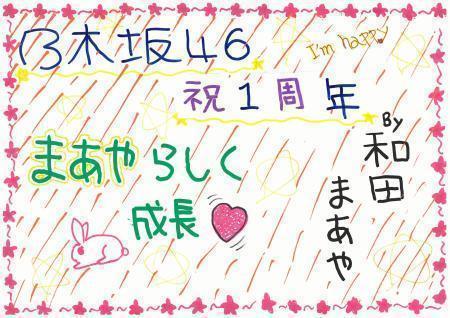 乃木坂46
I'm happy
祝1周年
まあやらしく
成長
By
和田
まあや